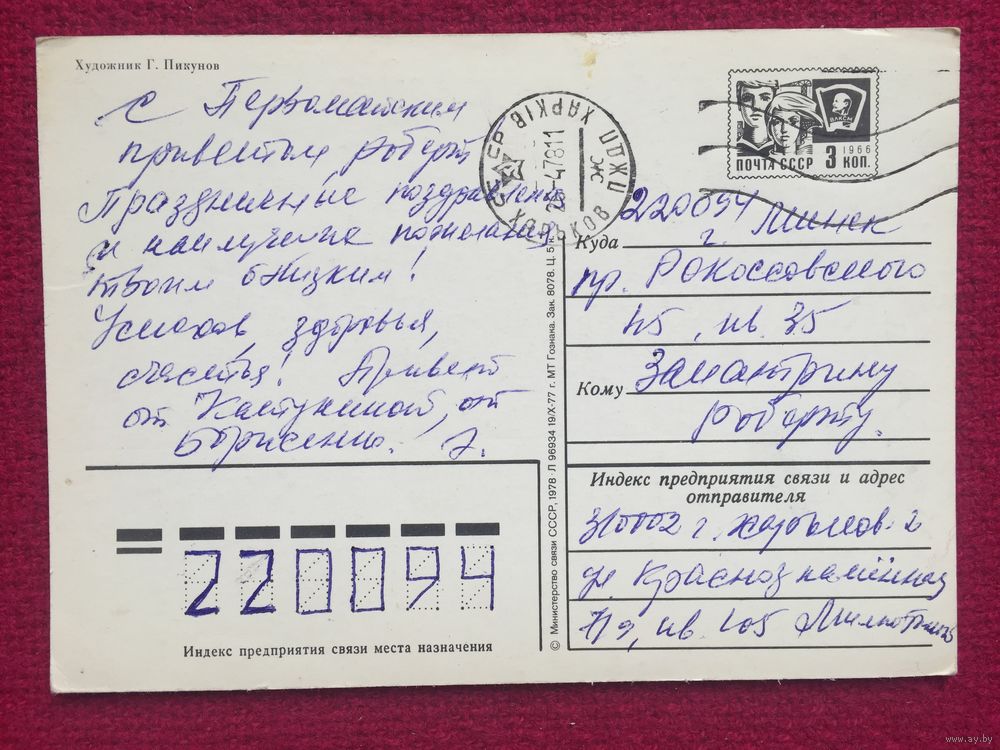 Художник Г. Пикунов
с Первомайским
приветом Роберт
Праздничные поздравления
и наилучшие пожелания
твоим близким!
Успехов, здоровья,
счастья! Привет
от
, от
ХАРКІВ ПЖДП
ХАРЬКОВ
Ж
-47811
ВЛКСМ
1966
ПОЧТА СССР 3 КОП.
220094
г. Минск
Куда
пр. Рокоссовского
45, кв. 35
Кому
Замантрину
Роберту.
Индекс предприятия связи и адрес
отправителя
310002 г. Харьков-2
ул. Краснознамённая
кв. 105
© Министерство связи СССР, 1978 · Л 96934 19/X-77 г. МТ Гознака. Зак. 8078. Ц. 5 к.
220094
Индекс предприятия связи места назначения
www.ay.by